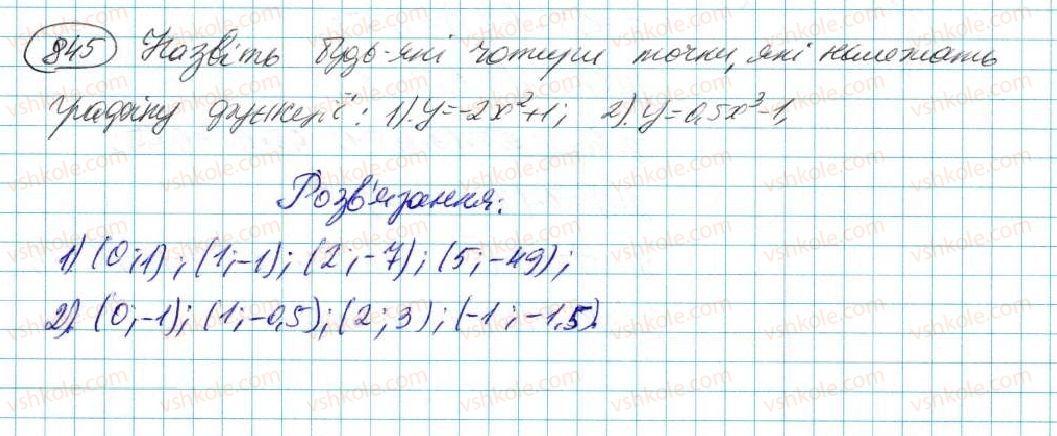 845 Назвіть будь-які чотири точки, які належать
графіку функції: 1). y=-2x²+1; 2). y=0,5x³-1.
Розв'язання:
1) (0;1); (1;-1); (2;-7); (5;-49);
2). (0;-1); (1;-0,5); (2;3); (-1;-1,5).
vshkole.com